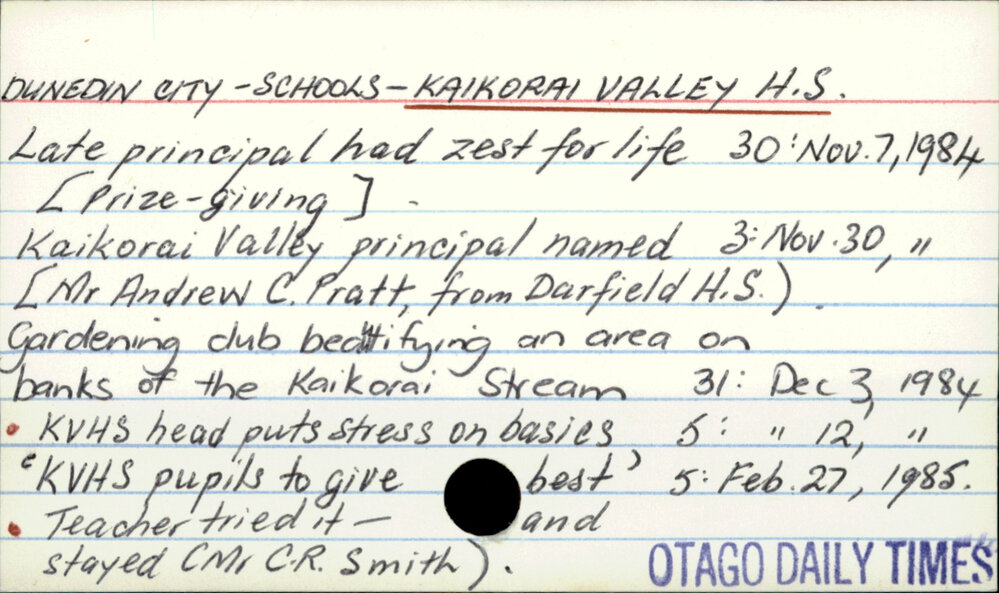 DUNEDIN CITY - SCHOOLS - KAIKORAI VALLEY H.S.
Late principal had zest for life 30: Nov. 7, 1984
[Prize-giving]
Kaikorai Valley principal named 3: Nov. 30, "
[Mr Andrew C. Pratt, from Darfield H.S.)
Gardening club beautifying an area on
banks of the Kaikorai Stream 31: Dec 3, 1984
• KVHS head puts stress on basics 5: " 12, "
'KVHS pupils to give best' 5: Feb. 27, 1985.
• Teacher tried it — and
stayed (Mr C.R. Smith).
OTAGO DAILY TIMES